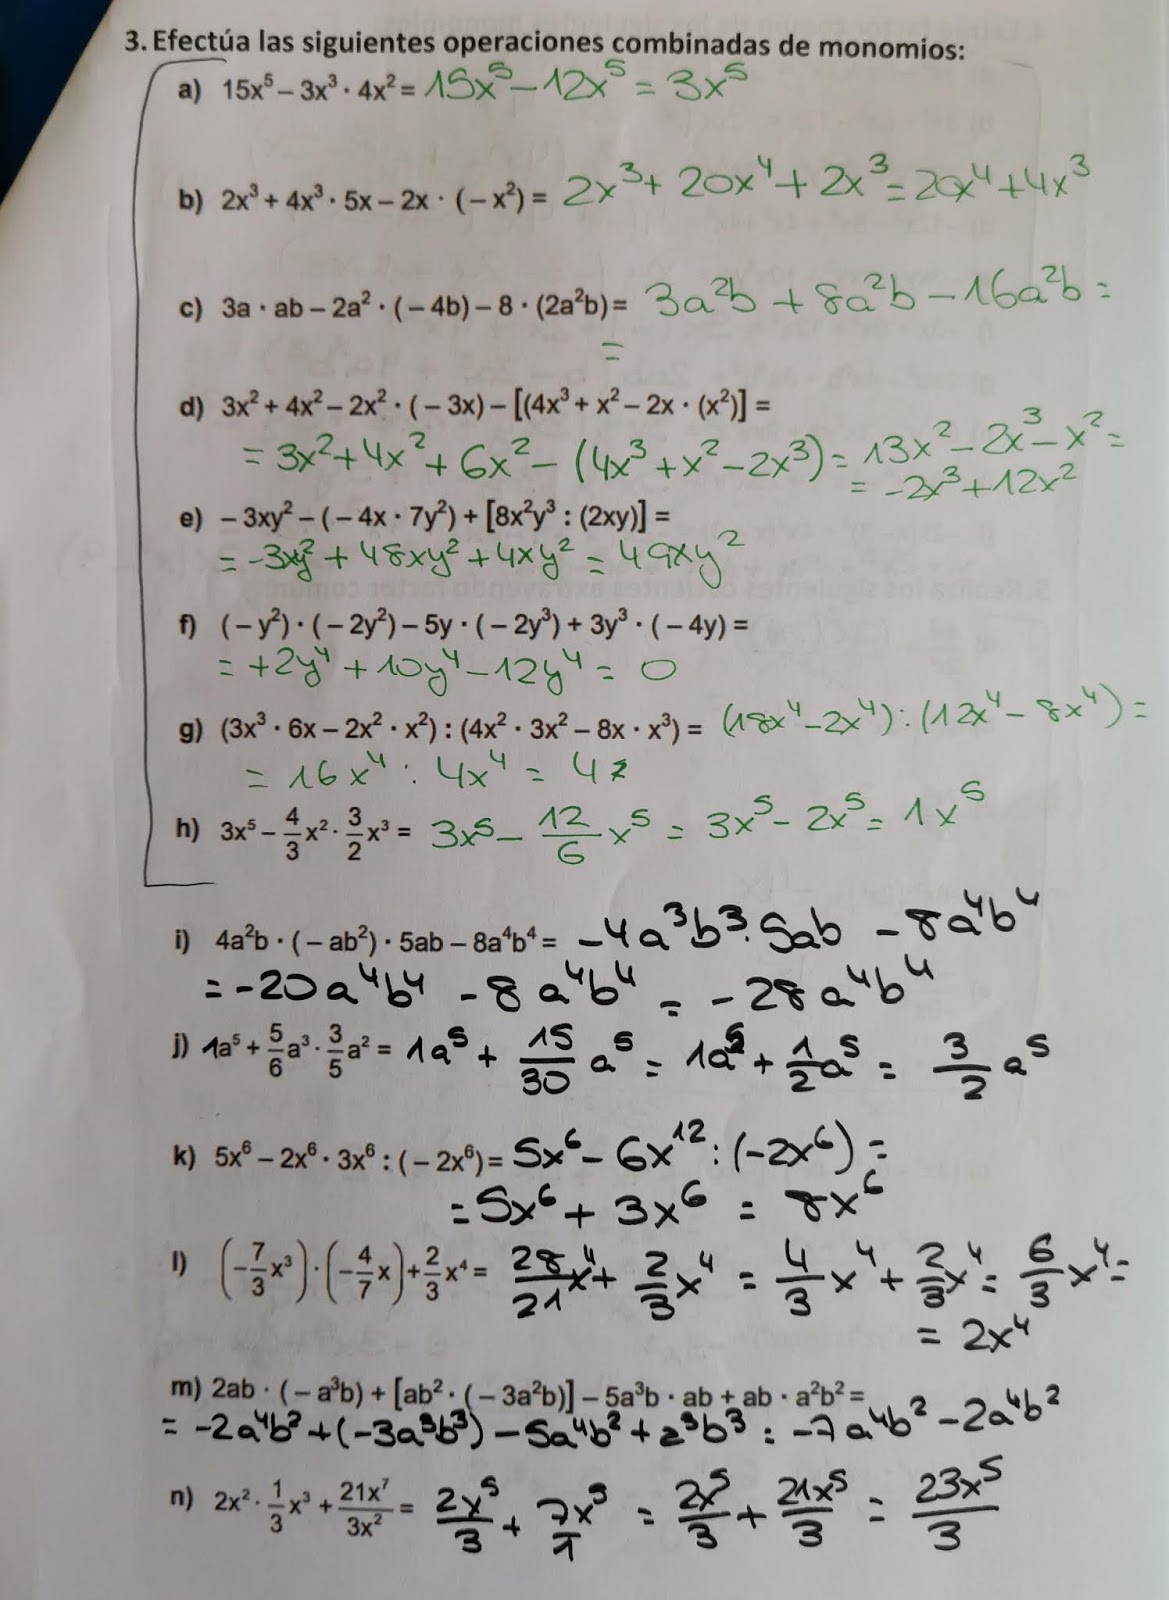 3. Efectúa las siguientes operaciones combinadas de monomios:
a) 15x⁵ – 3x³ · 4x² = 15x⁵ – 12x⁵ = 3x⁵
b) 2x³ + 4x³ · 5x – 2x · (– x²) = 2x³ + 20x⁴ + 2x³ = 20x⁴ + 4x³
c) 3a · ab – 2a² · (– 4b) – 8 · (2a²b) = 3a²b + 8a²b – 16a²b =
=
d) 3x² + 4x² – 2x² · (– 3x) – [(4x³ + x² – 2x · (x²)] =
= 3x² + 4x² + 6x² – (4x³ + x² – 2x³) = 13x² – 2x³ – x² =
= -2x³ + 12x²
e) – 3xy² – (– 4x · 7y²) + [8x²y³ : (2xy)] =
= -3xy² + 48xy² + 4xy² = 49xy²
f) (– y²) · (– 2y²) – 5y · (– 2y³) + 3y³ · (– 4y) =
= +2y⁴ + 10y⁴ – 12y⁴ = 0
g) (3x³ · 6x – 2x² · x²) : (4x² · 3x² – 8x · x³) = (18x⁴ – 2x⁴) : (12x⁴ – 8x⁴) =
= 16x⁴ : 4x⁴ = 4
h) 3x⁵ – 4/3 x² · 3/2 x³ = 3x⁵ – 12/6 x⁵ = 3x⁵ – 2x⁵ = 1x⁵
i) 4a²b · (– ab²) · 5ab – 8a⁴b⁴ = –4a³b³ · 5ab – 8a⁴b⁴
= -20a⁴b⁴ – 8a⁴b⁴ = -28a⁴b⁴
j) 1a⁵ + 5/6 a³ · 3/5 a² = 1a⁵ + 15/30 a⁵ = 1a⁵ + 1/2 a⁵ = 3/2 a⁵
k) 5x⁶ – 2x⁶ · 3x⁶ : (– 2x⁶) = 5x⁶ – 6x¹² : (–2x⁶) =
= 5x⁶ + 3x⁶ = 8x⁶
l) (–7/3 x³) · (–4/7 x) + 2/3 x⁴ = 28/21 x⁴ + 2/3 x⁴ = 4/3 x⁴ + 2/3 x⁴ = 6/3 x⁴ =
= 2x⁴
m) 2ab · (– a³b) + [ab² · (– 3a²b)] – 5a³b · ab + ab · a²b² =
= -2a⁴b² + (-3a³b³) – 5a⁴b² + a³b³ = -7a⁴b² – 2a⁴b²
n) 2x² · 1/3 x³ + 21x⁷/3x² = 2x⁵/3 + 7x⁵/1 = 2x⁵/3 + 21x⁵/3 = 23x⁵/3